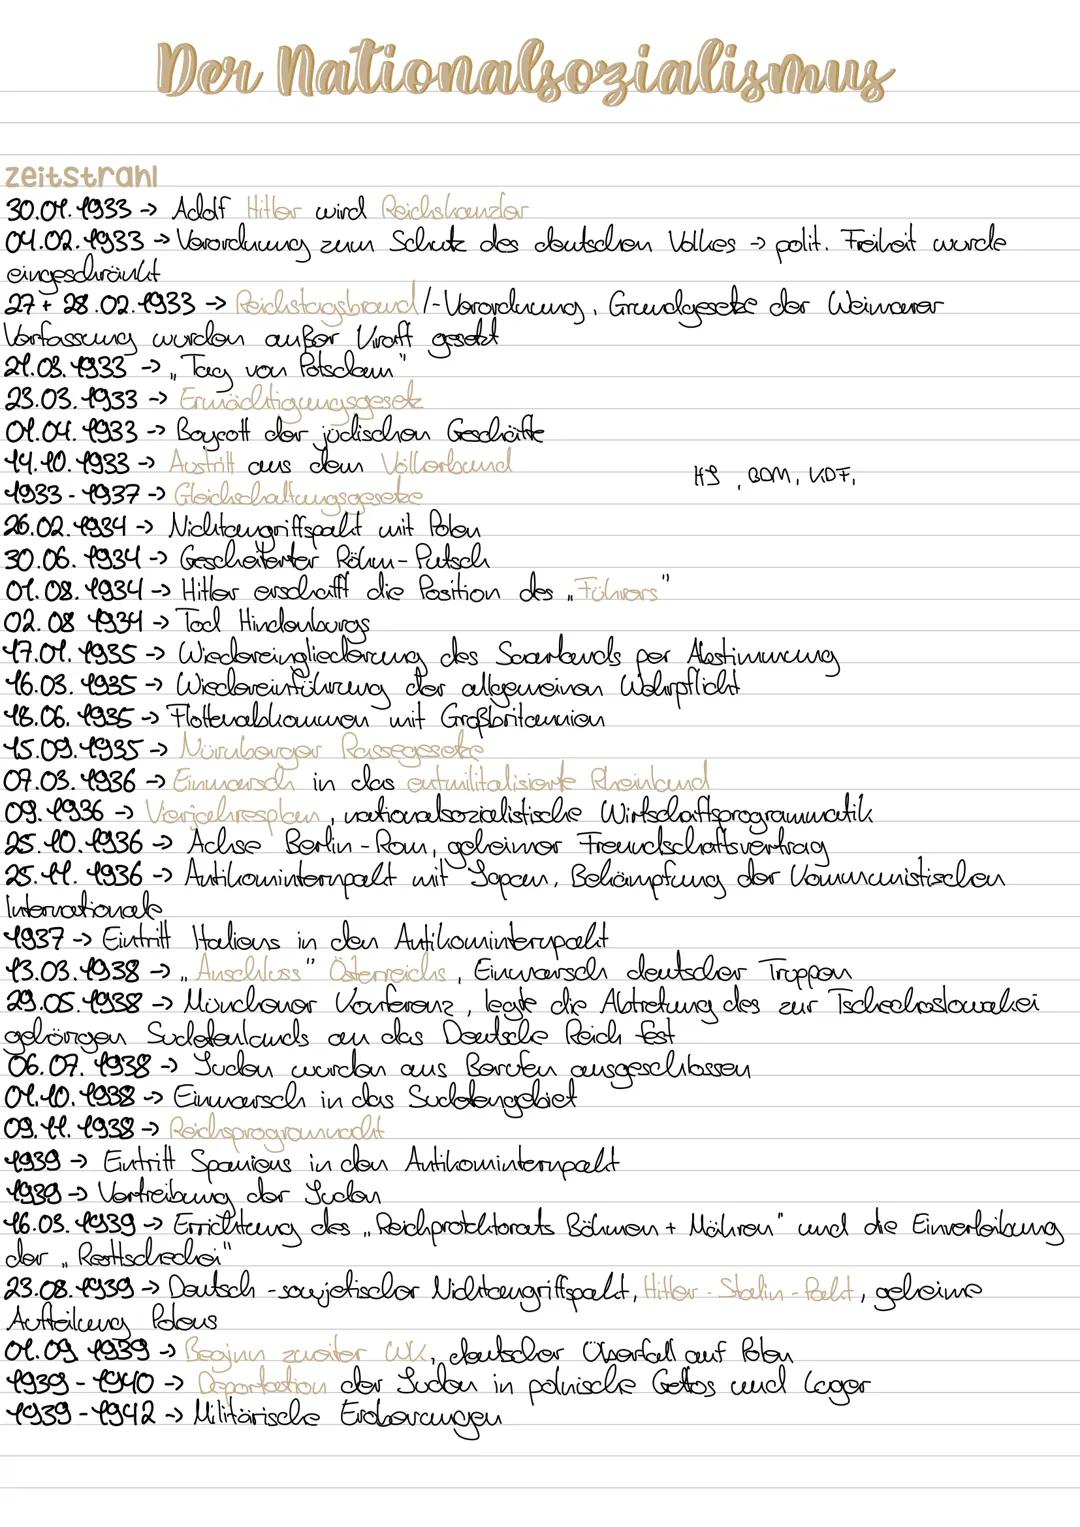 Der Nationalsozialismus
zeitstrahl
30.01.1933 -> Adolf Hitler wird Reichskanzler
04.02.1933 -> Verordnung zum Schutz des deutschen Volkes -> polit. Freiheit wurde
eingeschränkt
27 + 28.02.1933 -> Reichstagsbrand/-Verordnung, Grundgesetze der Weimarer
Verfassung wurden außer Kraft gesetzt
21.03.1933 -> „Tag von Potsdam"
23.03.1933 -> Ermächtigungsgesetz
01.04.1933 -> Boycott der jüdischen Geschäfte
14.10.1933 -> Austritt aus dem Völkerbund
HJ, BDM, KDF,
1933-1937 -> Gleichschaltungsgesetze
26.02.1934 -> Nichtangriffspakt mit Polen
30.06.1934 -> Gescheiterter Röhm-Putsch
01.08.1934 -> Hitler erschafft die Position des „Führers"
02.08 1934 -> Tod Hindenburgs
17.01.1935 -> Wiedereingliederung des Saarlands per Abstimmung
16.03.1935 -> Wiedereinführung der allgemeinen Wehrpflicht
18.06.1935 -> Flottenabkommen mit Großbritannien
15.09.1935 -> Nürnberger Rassegesetze
07.03.1936 -> Einmarsch in das entmilitalisierte Rheinland
09.1936 -> Vierjahresplan, nationalsozialistische Wirtschaftsprogrammatik
25.10.1936 -> Achse Berlin-Rom, geheimer Freundschaftsvertrag
25.11.1936 -> Antikominternpakt mit Japan, Bekämpfung der Kommunistischen
Internationale
1937 -> Eintritt Italiens in den Antikominternpakt
13.03.1938 -> „Anschluss" Österreichs, Einmarsch deutscher Truppen
29.05.1938 -> Münchener Konferenz, legte die Abtretung des zur Tschechoslowakei
gehörigen Sudetenlands an das Deutsche Reich fest
06.07.1938 -> Juden wurden aus Berufen ausgeschlossen
01.10.1938 -> Einmarsch in das Sudetengebiet
09.11.1938 -> Reichsprogromnacht
1939 -> Eintritt Spaniens in den Antikominternpakt
1939 -> Vertreibung der Juden
16.03.1939 -> Errichtung des „Reichprotektorats Böhmen + Mähren" und die Einverleibung
der „Resttschechei"
23.08.1939 -> Deutsch-sowjetischer Nichtangriffspakt, Hitler-Stalin-Pakt, geheime
Aufteilung Polens
01.09.1939 -> Beginn zweiter WK, deutscher Überfall auf Polen
1939-1940 -> Deportation der Juden in polnische Gettos und Lager
1939-1942 -> Militärische Eroberungen